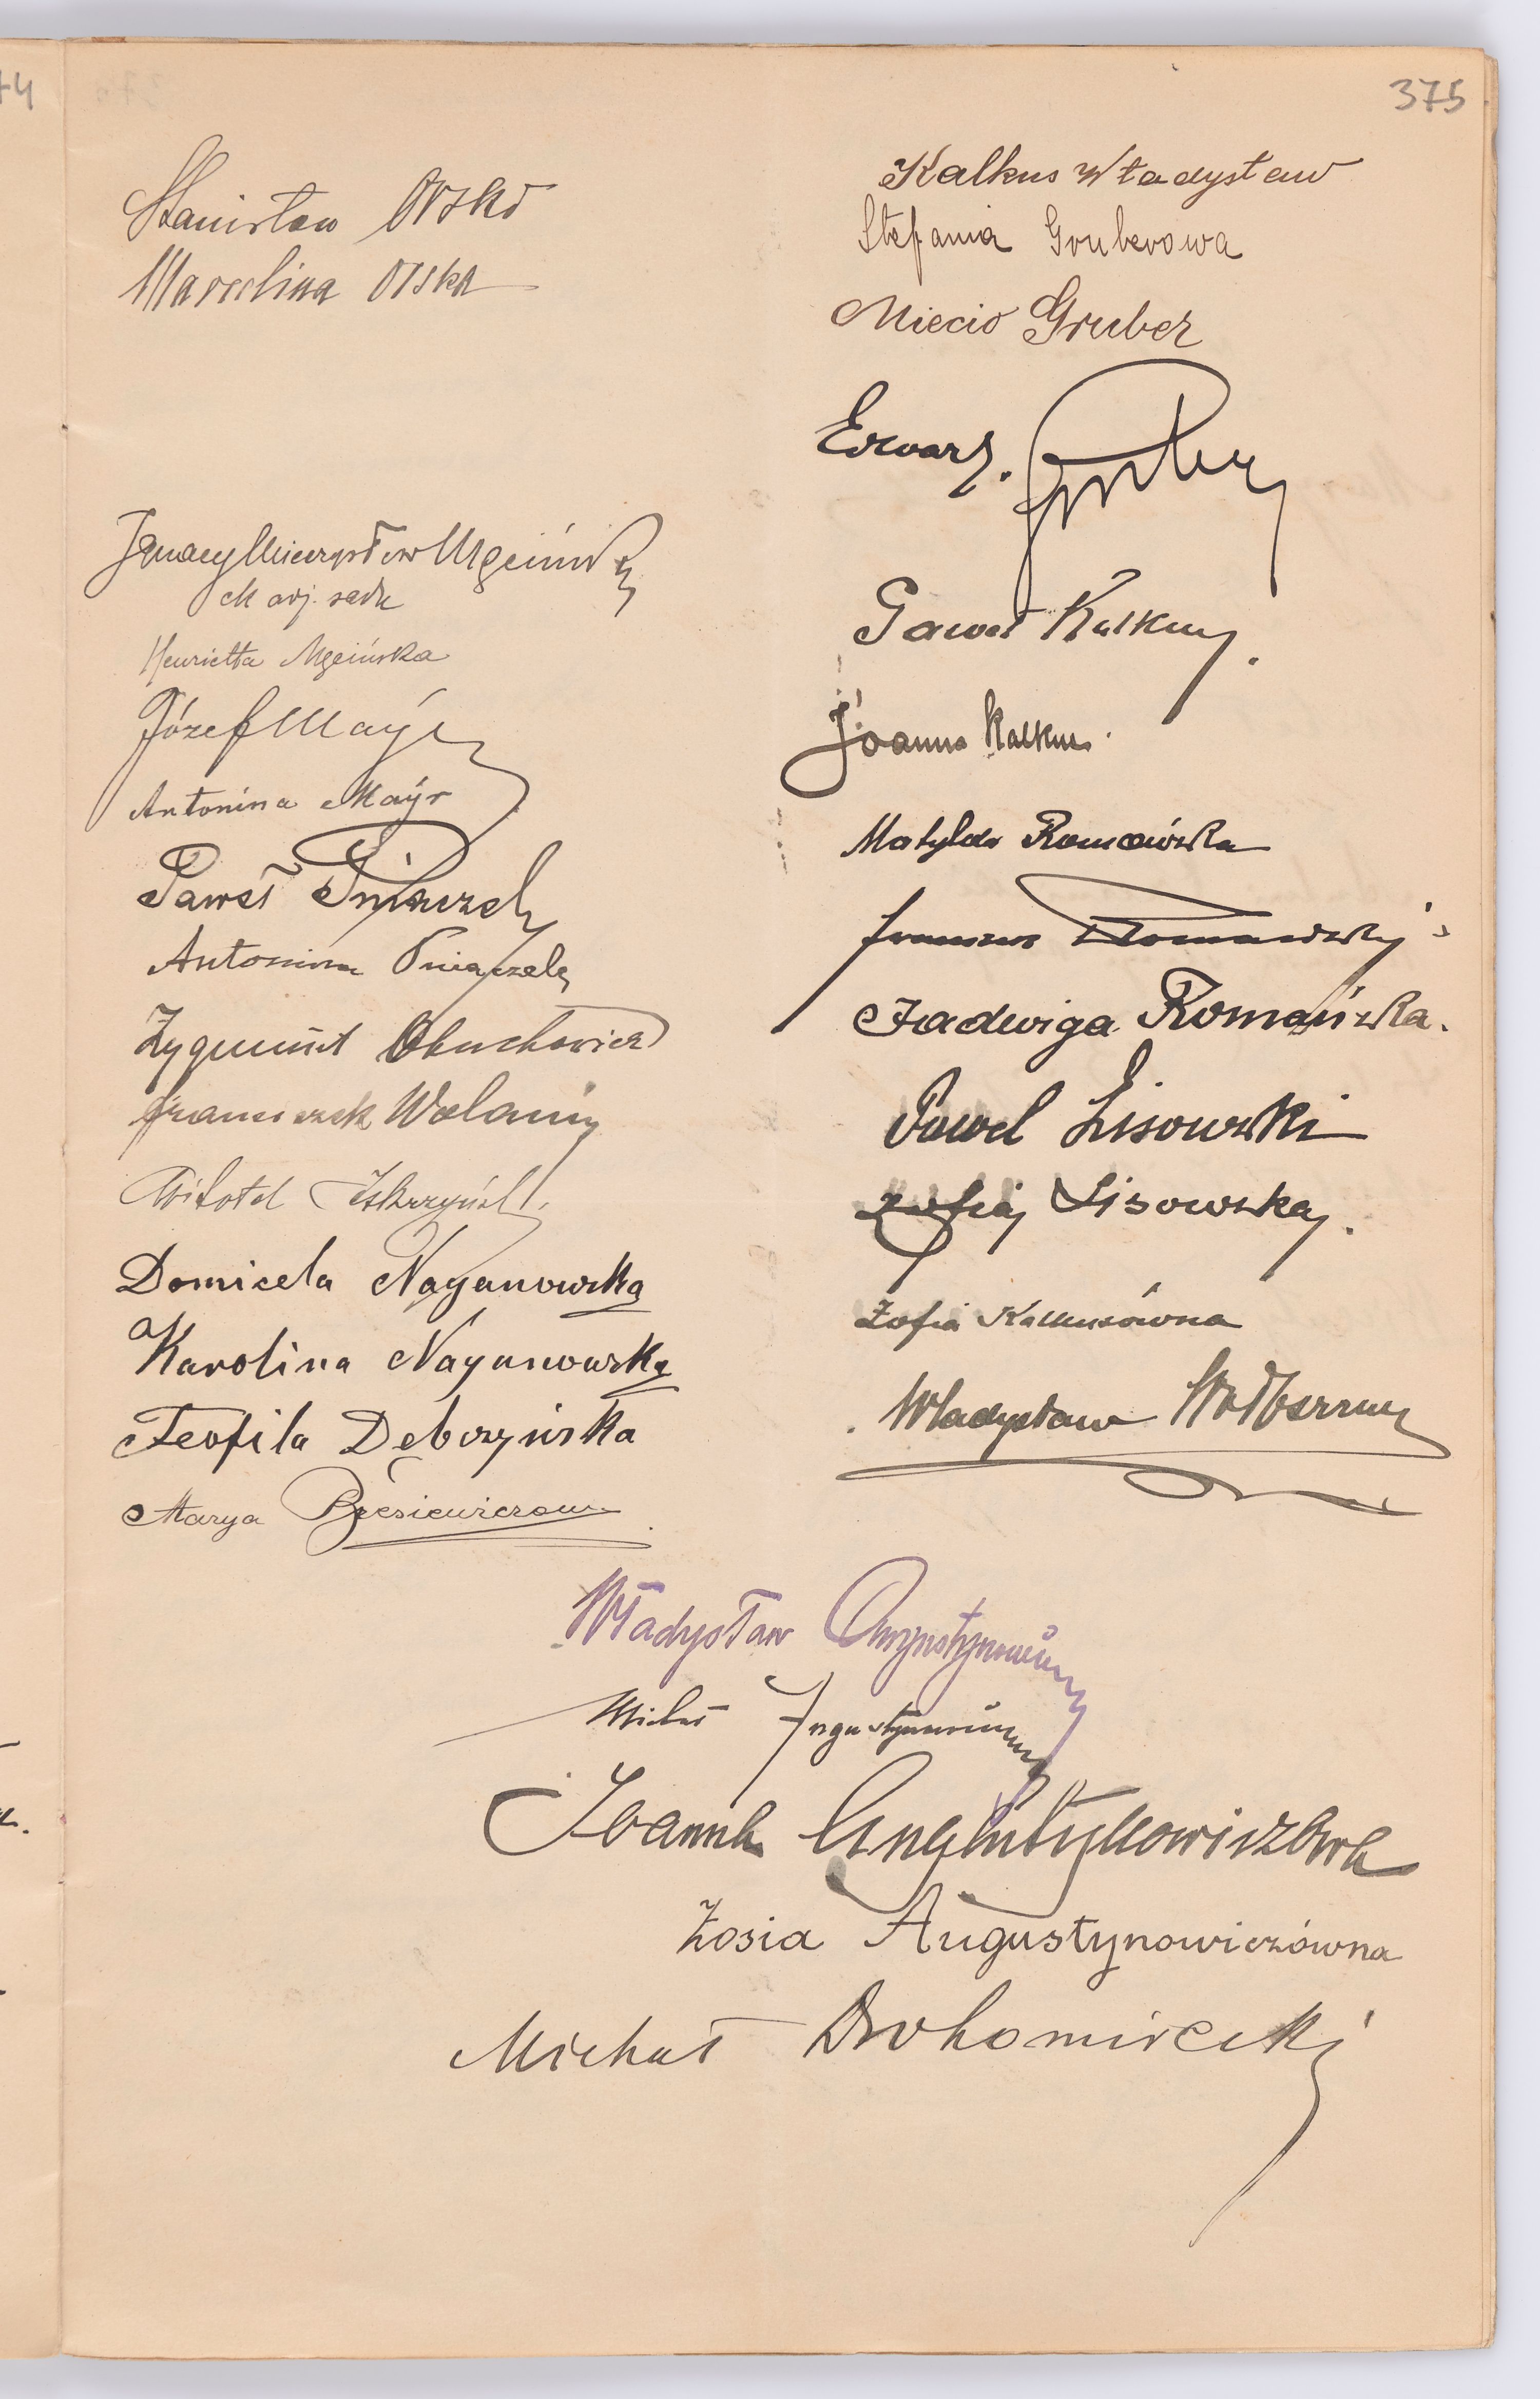 375
Stanisław Orsko
Marcelina Orska
Ignacy Mieczysław
Henrietta Mgeińska
Józef Mayr
Antonina Mayr
Paweł
Antonina
Zygmunt Obuchowicz
Franciszek Wolanin
Witold
Domicela Naganowska
Karolina Naganowska
Teofila Dębczyńska
Marya
Kalkus Władysław
Stefania Gruberowa
Miecio Gruber
Edward Gruber
Paweł Kalkus
Joanna Kalkus
Matylda Romańska
Romański
Jadwiga Romańska.
Paweł Lisowski
Zofia Lisowska.
Zofia Kalkusówna
Władysław
Władysław Augustynowicz
Michał Augustynowicz
Joanna Augustynowiczowa
Zosia Augustynowiczówna
Michał Drohomirecki